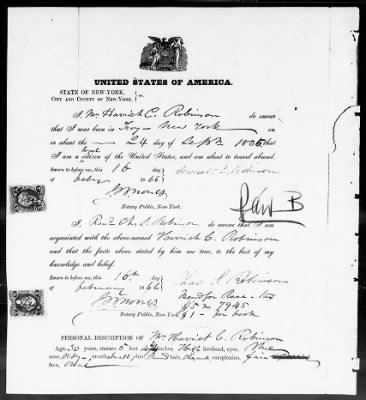 UNITED STATES OF AMERICA.
STATE OF NEW-YORK,
CITY AND COUNTY OF NEW-YORK, } ss.
I, Mrs Harriet C. Robinson do swear
that I was born in Troy - New York on
or about the 24 day of Sept 1835, that
I am a loyal citizen of the United States, and am about to travel abroad.
Sworn to before me, this 16 day
of 1866 Harriet C. Robinson
Notary Public, New-York.
I, Revd Chas. S. Robinson do swear that I am
acquainted with the above-named Harriet C. Robinson
and that the facts above stated by him are true, to the best of my
knowledge and belief.
Sworn to before me, this 16th day
of February 1866 Chas. S. Robinson
Notary Public, New-York.
$1 - for book
PERSONAL DESCRIPTION OF Mrs Harriet C. Robinson
Age, 30 years, stature, 5 feet inches, High forehead, eyes, Blue
nose, mouth, small chin, Round hair, complexion, fair
face, Oval